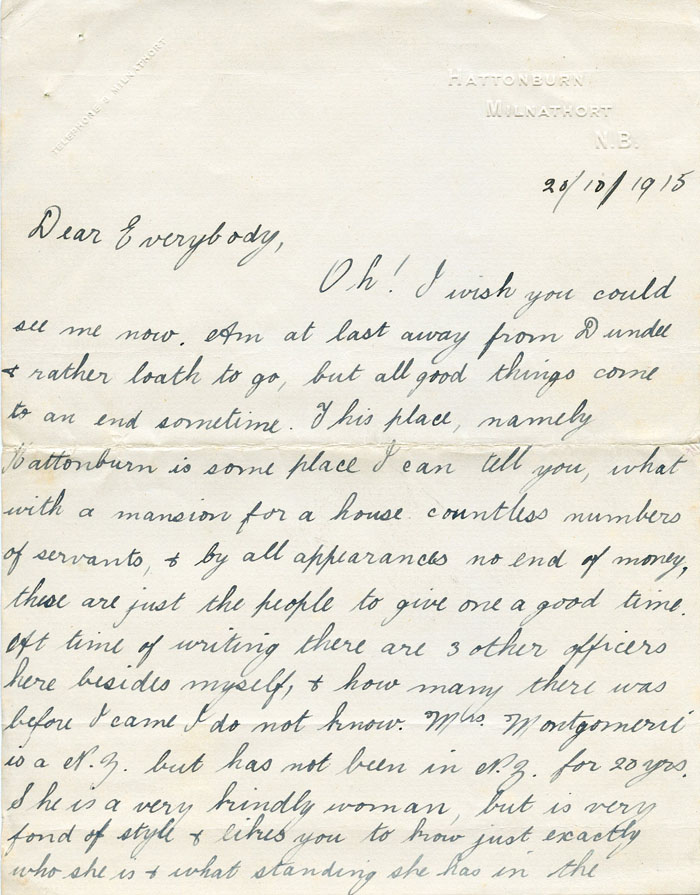 TELEPHONE 8 MILNATHORT
HATTONBURN
MILNATHORT
N.B.
20/10/1915
Dear Everybody,
Oh! I wish you could
see me now. Am at last away from Dundee
& rather loath to go, but all good things come
to an end sometime. This place, namely
Hattonburn is some place I can tell you, what
with a mansion for a house countless numbers
of servants, & by all appearances no end of money,
these are just the people to give one a good time.
At time of writing there are 3 other officers
here besides myself, & how many there was
before I came I do not know. Mrs. Montgomerie
is a N.Z. but has not been in N.Z. for 20 yrs.
She is a very kindly woman, but is very
fond of style & likes you to know just exactly
who she is & what standing she has in the